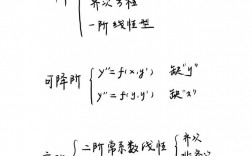 齐次方程
一阶线性型
可降阶 { y''=f(x,y') 缺"y"
y''=f(y,y') 缺"x"
二阶常系数线性 { 齐次